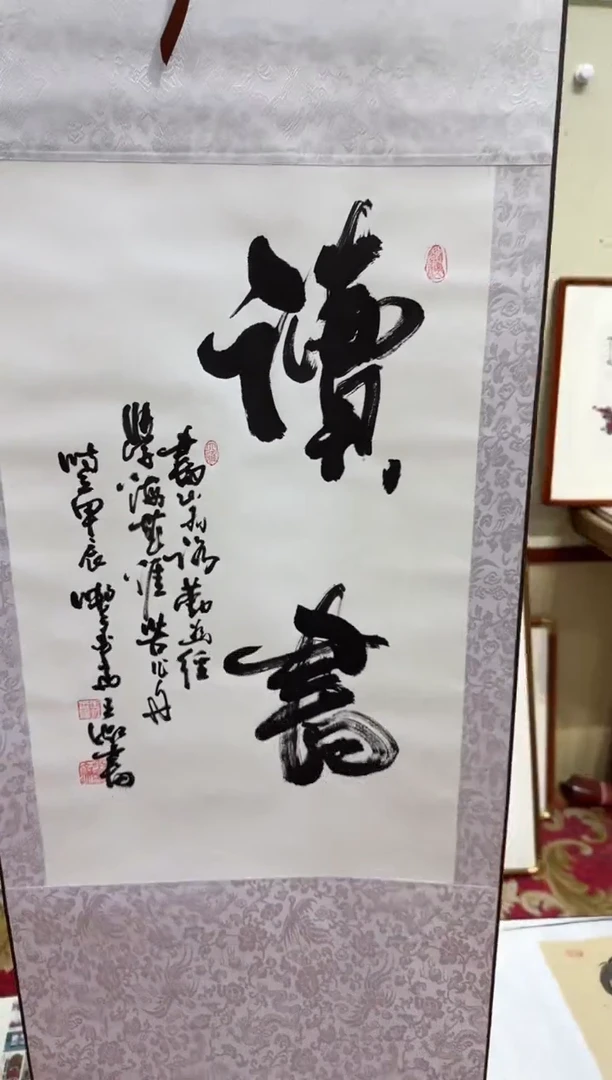 讀書
書山有路勤為徑
學海無涯苦作舟
時在甲辰
書